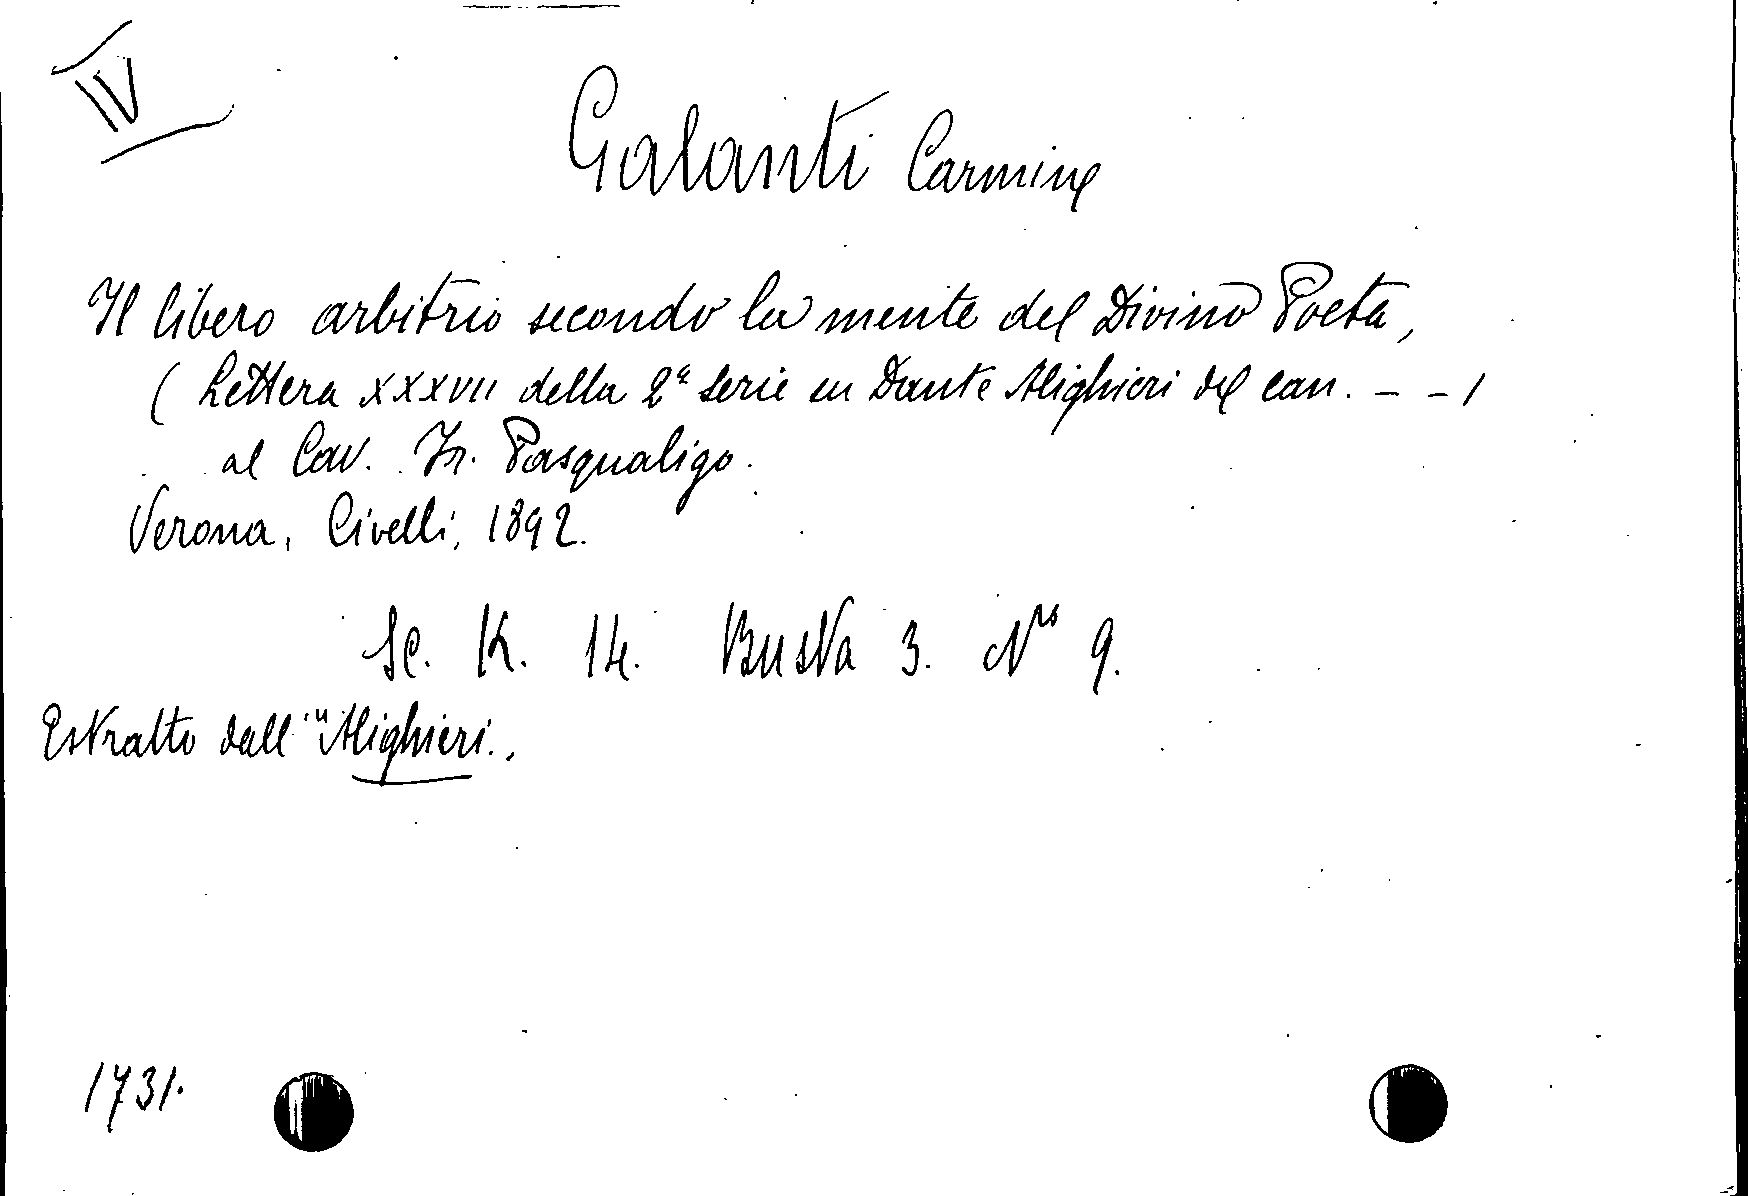 IV
Galanti Carmine
Il libero arbitrio secondo la mente del Divino Poeta,
(Lettera XXXVII della 2ª serie su Dante Alighieri del can. - - )
al Cav. Fr. Pasqualigo.
Verona, Civelli, 1892.
Sc. K. 14. Busta 3. Nro 9.
Estratto dall' "Alighieri".
1731.